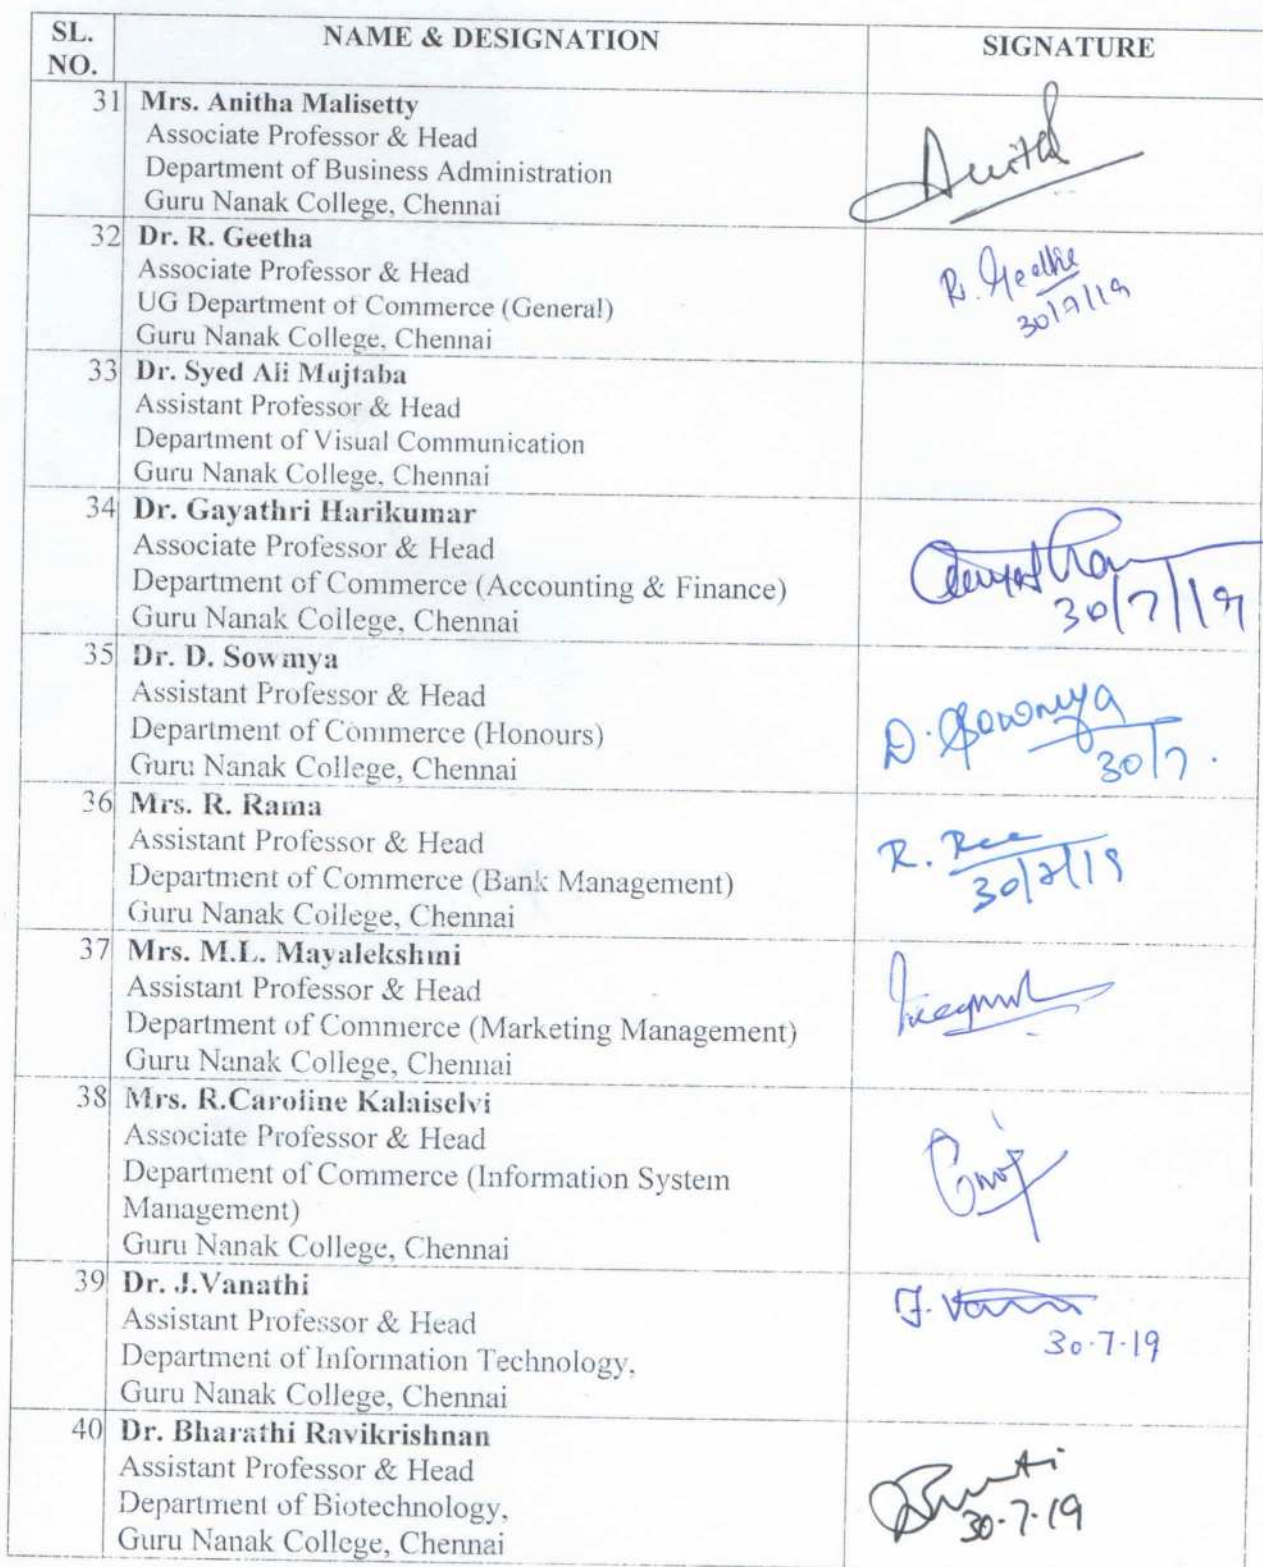 SL. NO. NAME & DESIGNATION SIGNATURE
31 Mrs. Anitha Malisetty
Associate Professor & Head
Department of Business Administration
Guru Nanak College, Chennai
Anitha
32 Dr. R. Geetha
Associate Professor & Head
UG Department of Commerce (General)
Guru Nanak College, Chennai
R. Geetha
30/7/19
33 Dr. Syed Ali Mujtaba
Assistant Professor & Head
Department of Visual Communication
Guru Nanak College, Chennai
34 Dr. Gayathri Harikumar
Associate Professor & Head
Department of Commerce (Accounting & Finance)
Guru Nanak College, Chennai
30/7/19
35 Dr. D. Sowmya
Assistant Professor & Head
Department of Commerce (Honours)
Guru Nanak College, Chennai
D. Sowmya
30/7.
36 Mrs. R. Rama
Assistant Professor & Head
Department of Commerce (Bank Management)
Guru Nanak College, Chennai
R.
30/7/19
37 Mrs. M.L. Mayalekshmi
Assistant Professor & Head
Department of Commerce (Marketing Management)
Guru Nanak College, Chennai
38 Mrs. R.Caroline Kalaiselvi
Associate Professor & Head
Department of Commerce (Information System
Management)
Guru Nanak College, Chennai
39 Dr. J.Vanathi
Assistant Professor & Head
Department of Information Technology,
Guru Nanak College, Chennai
J.
30.7.19
40 Dr. Bharathi Ravikrishnan
Assistant Professor & Head
Department of Biotechnology,
Guru Nanak College, Chennai
30.7.19